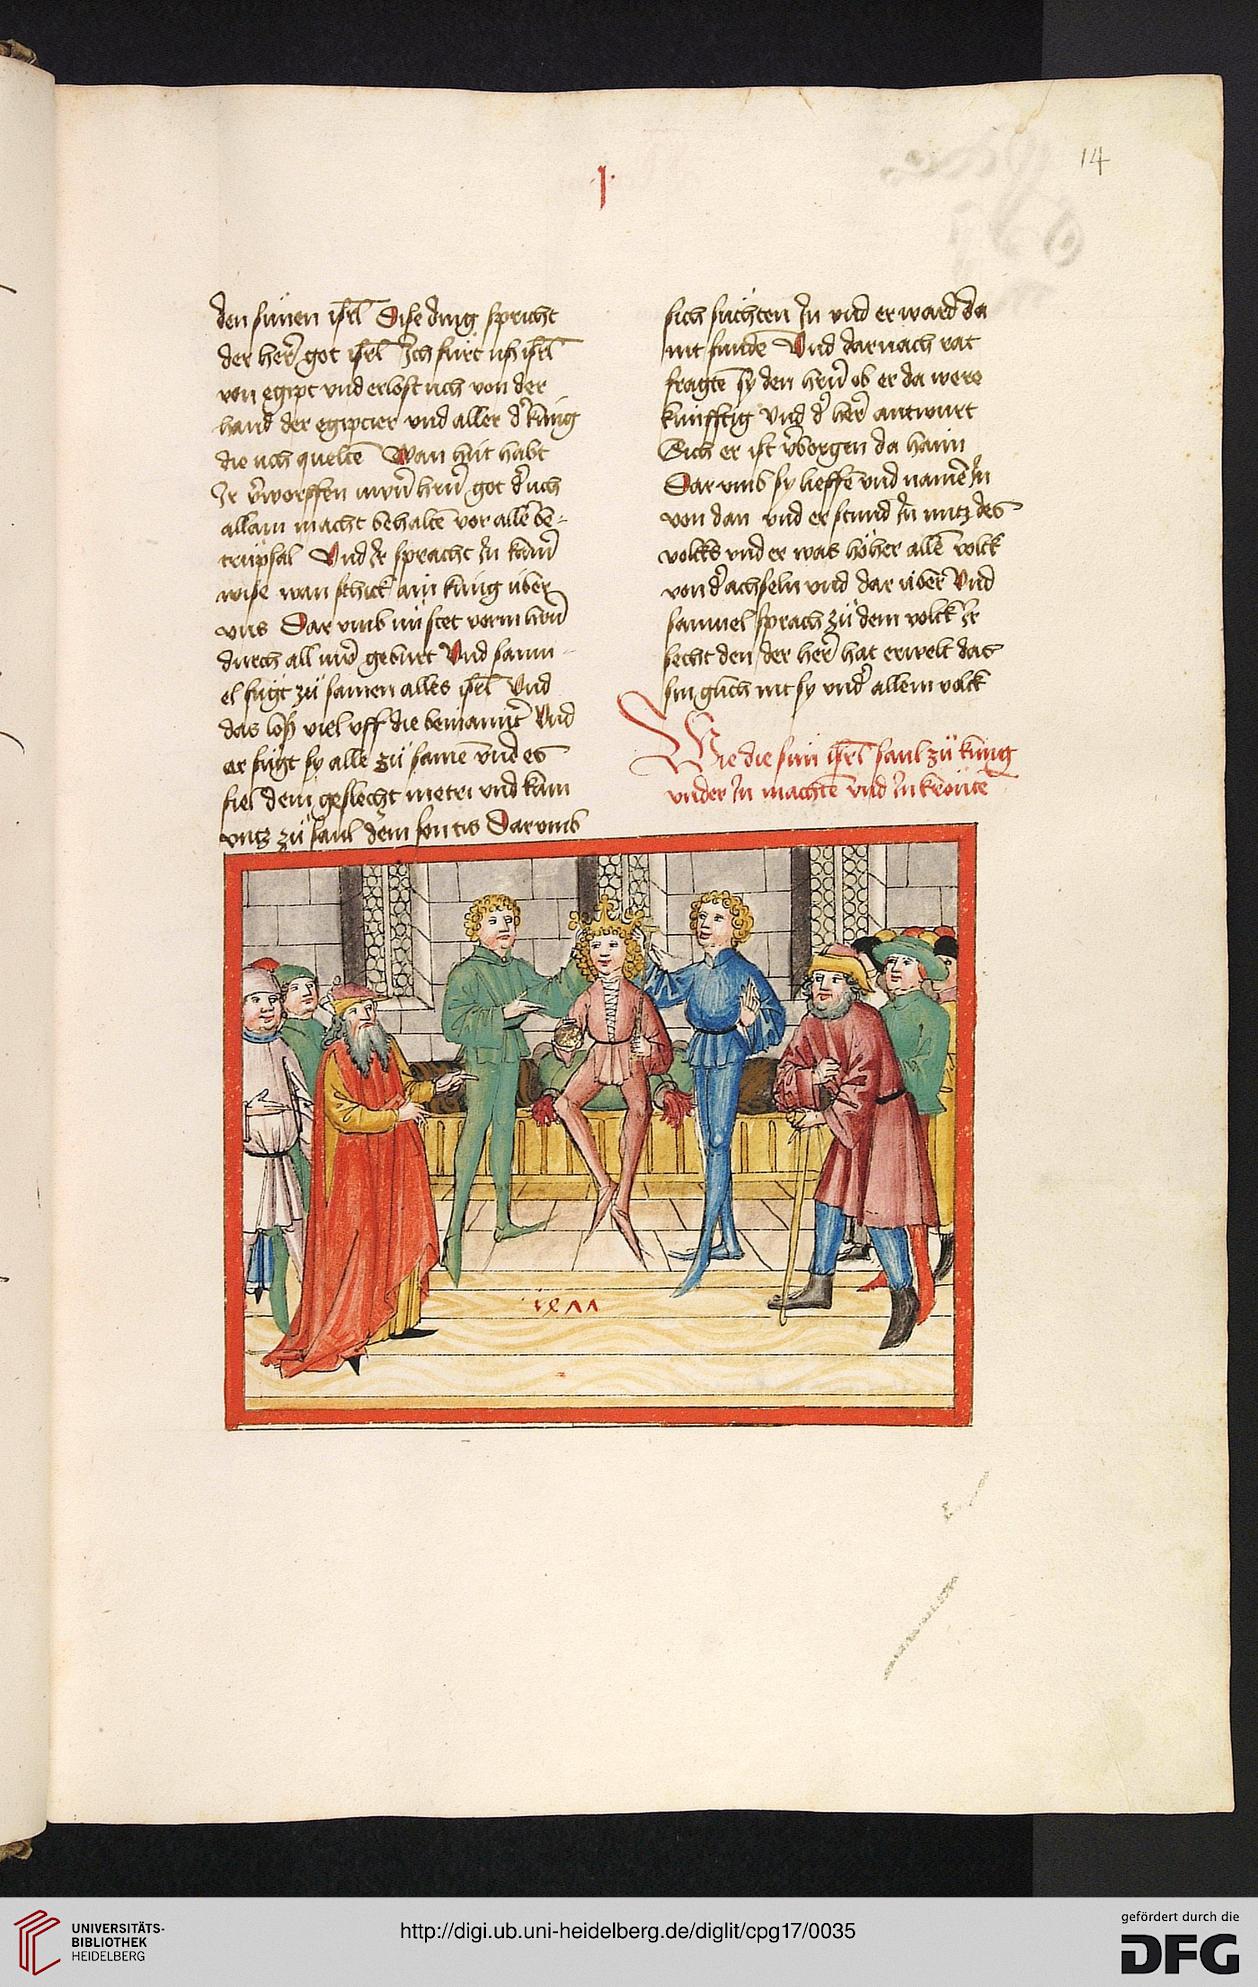 ·J·
14
den sunen isrl Dise ding spricht
der her got isrl Jch furt uß isrl
von egipt vnd erlost uch von der
hand der egipcier vnd aller d' kung
die uch quelte Wan hut habt
Jr v'worffen uwrn hrn got d' uch
allain macht behalte vor alle be-
trupsal Vnd Jr spracht Jn kainr
wise wan schick ain kung uber
vns Dar vmb nu stet vorm hrn
durch all uwr geburt Vnd samu-
el fugt zu samen alles isrl Vnd
das loß viel vff die beniamit Vnd
er fugt sy alle zu same vnd es
fiel dem geslecht metri vnd kam
vntz zu saul dem son cis Dar vmb
sich suchten Jn vnd er ward da
nit funde Vnd dar nach rat
fragte sy den hrn ob er da were
kunfftig Vnd d' her antwurt
Sich er ist v'borgen da haim
Dar vmb sy lieffe vnd name Jn
von dan vnd er stund Jn mitz des
volcks vnd er was hoher alle volck
von d' achseln vnd dar uber Vnd
samuel sprach zu dem volck Jr
secht den der her hat erwelt das
sin glich nit sy vnd' allem volck
Wie die sun isrl saul zu kung
vnder Jn machte vnd Jn kronte
UNIVERSITÄTS-
BIBLIOTHEK
HEIDELBERG
http://digi.ub.uni-heidelberg.de/diglit/cpg17/0035
gefördert durch die
DFG